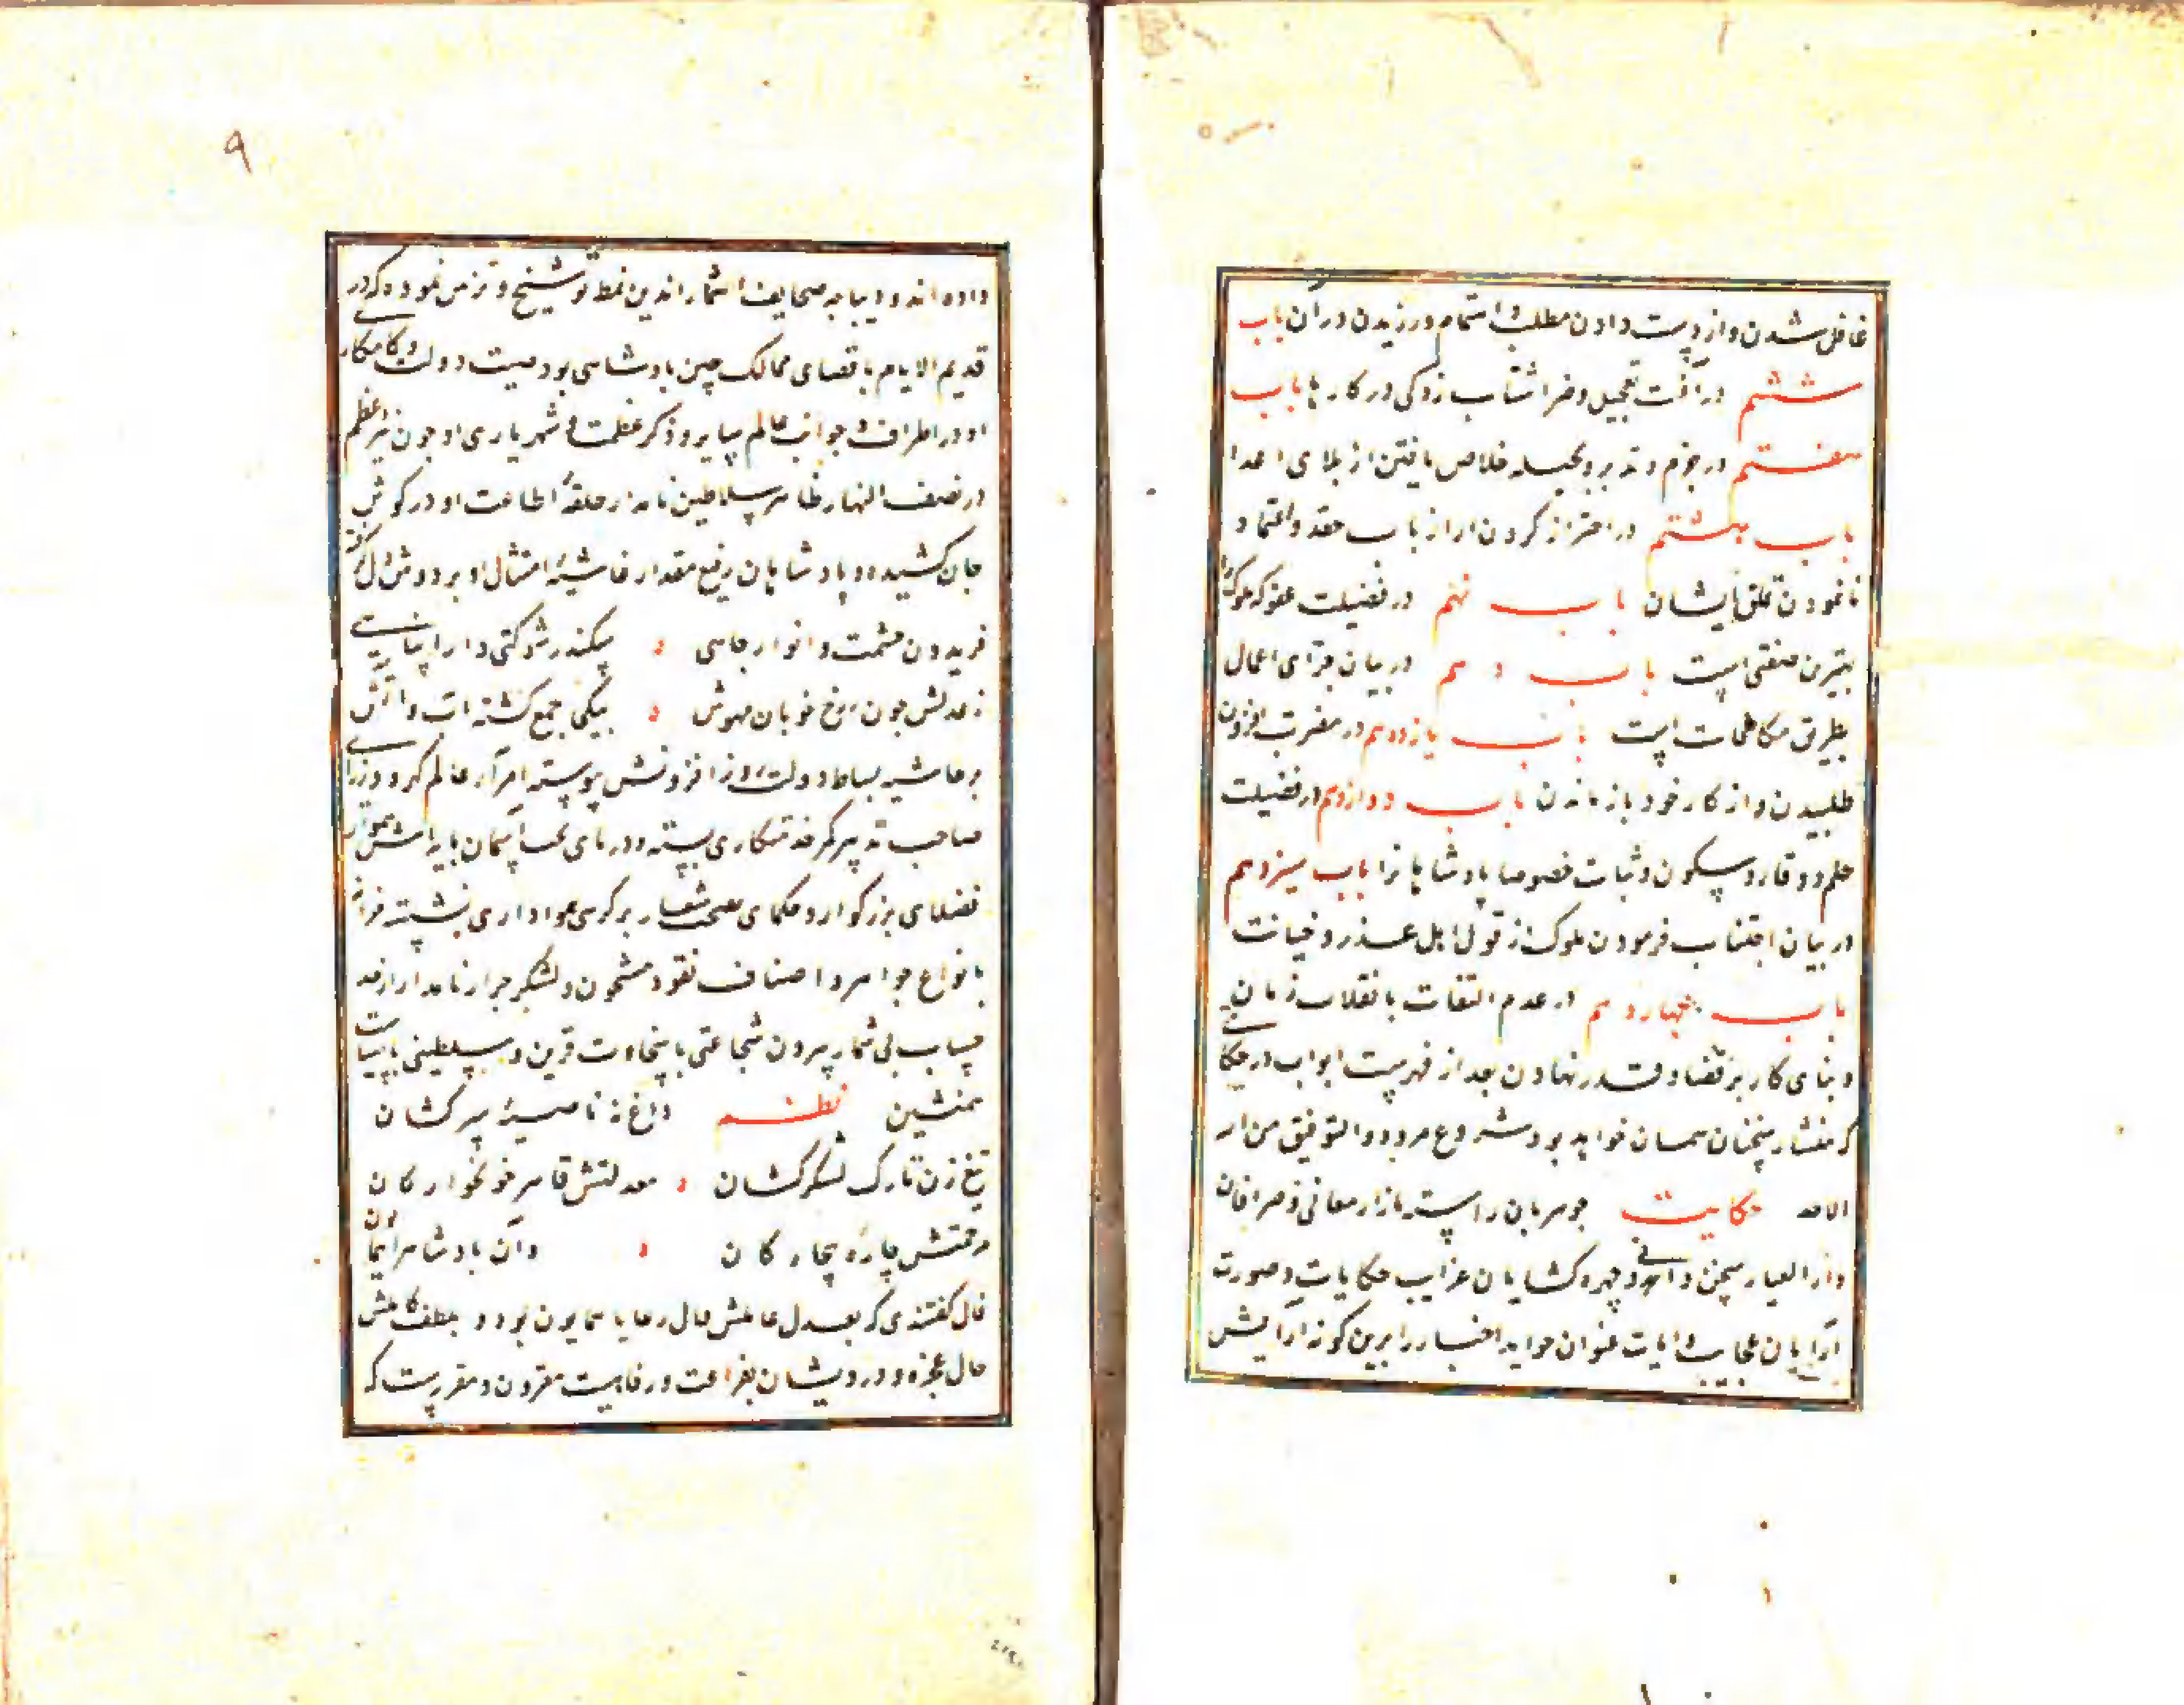 غافل شدن و از دست دادن مطلب و اهتمام ورزیدن در آن باب
ششم در آفت تعجیل و ضرر شتاب زدگی در کارها باب
هفتم در حزم و تدبیر و بحیله خلاص یافتن از بلای اعدا
باب هشتم در احتراز کردن از ارباب حقد و اعتماد
نانمودن تملق ایشان باب نهم در فضیلت عفو که ملوک را
بهترین صفتی است باب دهم در بیان جزای اعمال
بطریق مکافات است باب یازدهم در مضرت افزون
طلبیدن و از کار خود باز ماندن باب دوازدهم در فضیلت
حلم و وقار و سکون و ثبات خصوصا پادشاهانرا باب سیزدهم
در بیان اجتناب فرمودن ملوک از قول اهل غدر و خیانت
باب چهاردهم در عدم التفات بانقلاب زمان
و بنای کار بر قضا و قدر نهادن بعد از فهرست ابواب در حکایتی
که منشا سخنان همان خواهد بود شروع میرود و التوفیق من الله
الاحد حکایت جوهریان راسته بازار معانی و صرافان
دار العیار سخن دانی و چهره گشایان غرایب حکایات و صورت
آرایان عجایب روایات عنوان جراید اخبار را برین گونه آرایش
۹
داده اند و دیباجه صحایف اسمار را بدین نمط توشیح و تزیین نموده که در
قدیم الایام باقصای ممالک چین پادشاهی بود صیت دولت و کامکاری
او در اطراف و جوانب عالم سایر و ذکر عظمت و شهریاری او چون نیر اعظم
در نصف النهار ظاهر سلاطین نامدار حلقه اطاعت او در گوش
جان کشیده و پادشاهان رفیع مقدار غاشیه امتثال او بر دوش دل گرفته
فریدون حشمت و انوار جاهی سکندر شوکتی دارا پناهی
ز عدلش چون رخ خوبان مهوش بیکی جمع گشته آب و آتش
بر حاشیه بساط دولت روز افزونش پیوسته امرآء عالم گیر و وزرای
صاحب تدبیر کمر خدمتکاری بسته و در پای تخت آسمان پایه اش همواره
فضلای بزرگوار و حکمای نصیحت شعار بر کرسی هواداری نشسته خزانه
بانواع جواهر و اصناف نقود مشحون و لشکر جرار نامدار از حد
حساب بی شمار بیرون شجاعتی با سخاوت قرین و سلطنتی با سیاست
همنشین نظم داغ نه ناصیه سرکشان
تیغ زن تارک لشکرکشان معدلتش قاهر خونخوارگان
مرحمتش چاره بیچارگان و آن پادشاه را همایون
فال گفتندی که بعدل عاملش حال رعایا همایون بود و بلطف کاملش
حال عجزه و درویشان بفراغت و رفاهیت مقرون و مقررست که